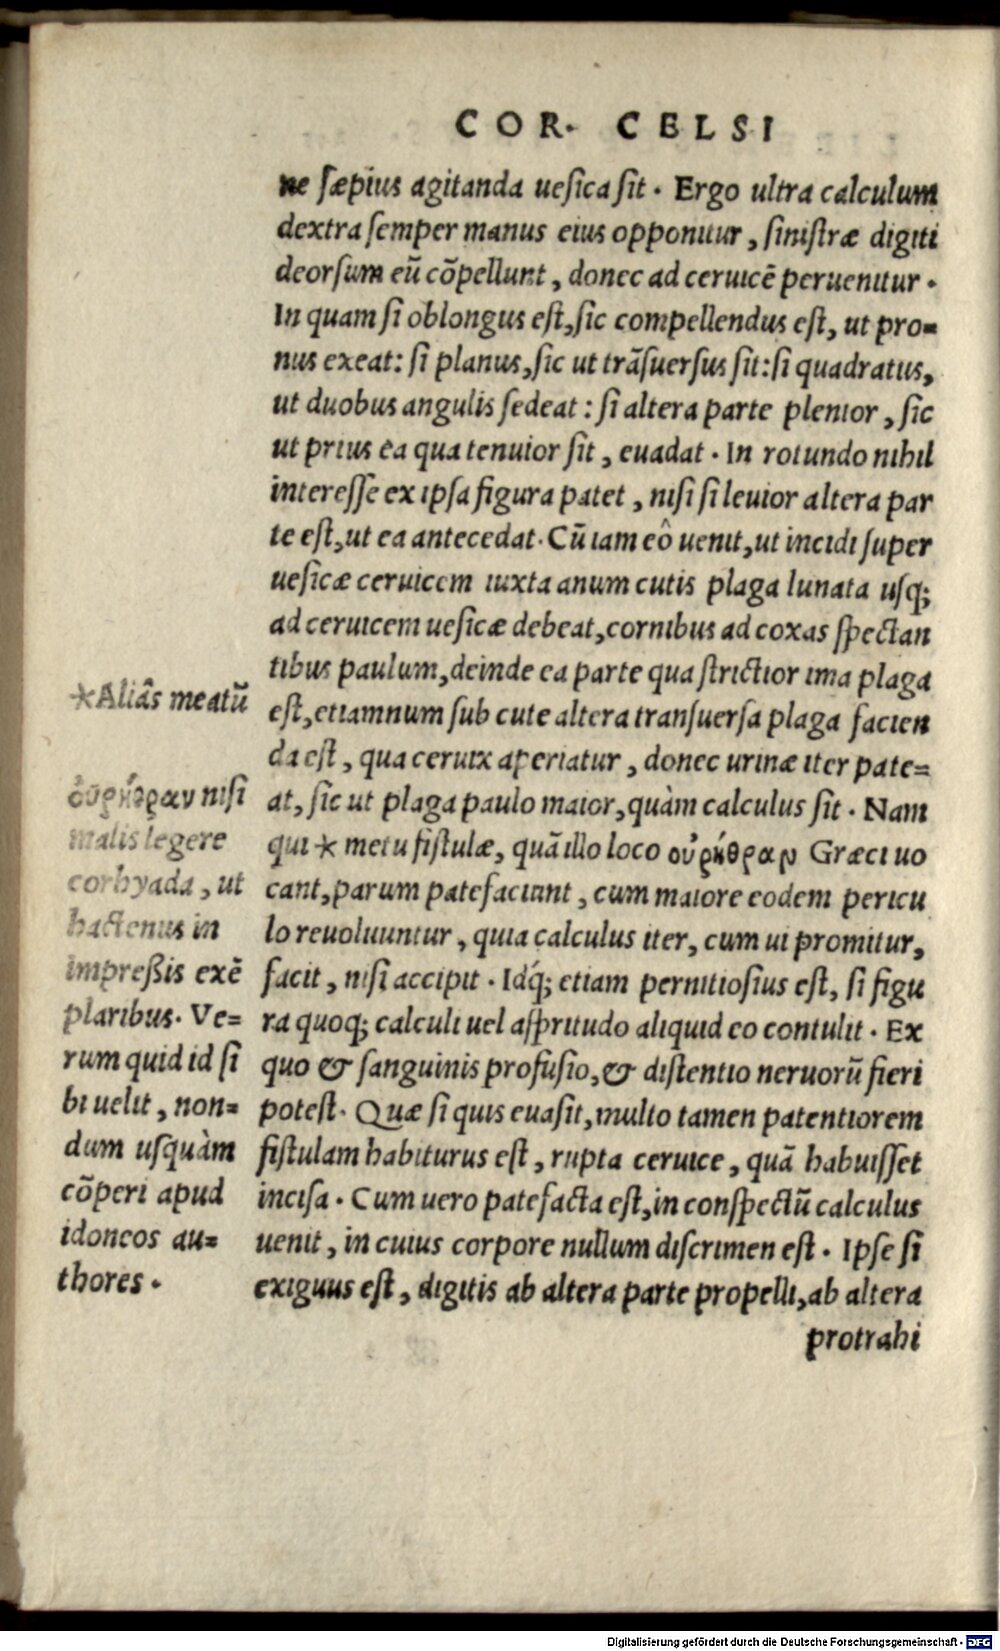 COR. CELSI
ne sæpius agitanda uesica sit. Ergo ultra calculum
dextra semper manus eius opponitur, sinistræ digiti
deorsum eũ cõpellunt, donec ad ceruicẽ peruenitur.
In quam si oblongus est, sic compellendus est, ut pro=
nus exeat: si planus, sic ut trãsuersus sit: si quadratus,
ut duobus angulis sedeat: si altera parte plenior, sic
ut prius ea qua tenuior sit, euadat. In rotundo nihil
interesse ex ipsa figura patet, nisi si leuior altera par
te est, ut ea antecedat. Cũ iam eô uenit, ut incidi super
uesicæ ceruicem iuxta anum cutis plaga lunata usq;
ad ceruicem uesicæ debeat, cornibus ad coxas spectan
tibus paulum, deinde ea parte qua strictior ima plaga
est, etiamnum sub cute altera transuersa plaga facien
da est, qua ceruix aperiatur, donec urinæ iter pate=
at, sic ut plaga paulo maior, quàm calculus sit. Nam
qui * metu fistulæ, quã illo loco οὐρήθραν Græci uo
cant, parum patefaciunt, cum maiore eodem pericu
lo reuoluuntur, quia calculus iter, cum ui promitur,
facit, nisi accipit. Idq́; etiam pernitiosius est, si figu
ra quoq; calculi uel aspritudo aliquid eo contulit. Ex
quo & sanguinis profusio, & distentio neruorũ fieri
potest. Quæ si quis euasit, multo tamen patentiorem
fistulam habiturus est, rupta ceruice, quã habuisset
incisa. Cum uero patefacta est, in conspectũ calculus
uenit, in cuius corpore nullum discrimen est. Ipse si
exiguus est, digitis ab altera parte propelli, ab altera
protrahi
*Aliâs meatũ
οὐρήθραν nisi
malis legere
corhyada, ut
hactenus in
impressis exẽ
plaribus. Ve=
rum quid id si
bi uelit, non=
dum usquàm
cõperi apud
idoneos au=
thores.
Digitalisierung gefördert durch die Deutsche Forschungsgemeinschaft - DFG